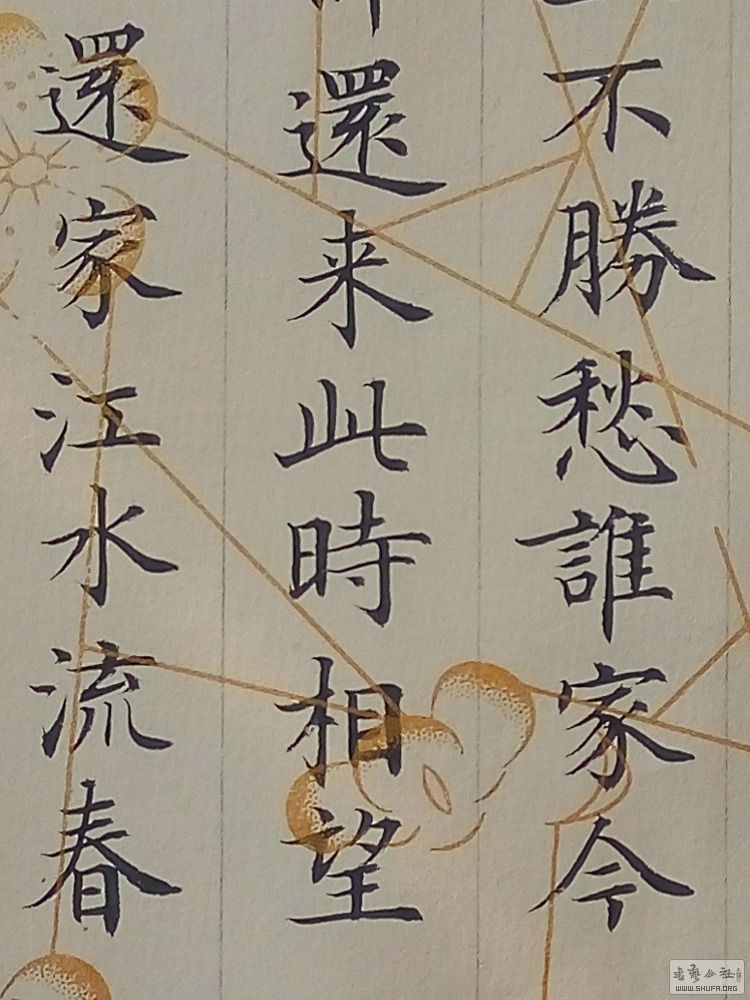 不勝愁誰家今
還来此時相望
還家江水流春
WWW.SHUFA.ORG